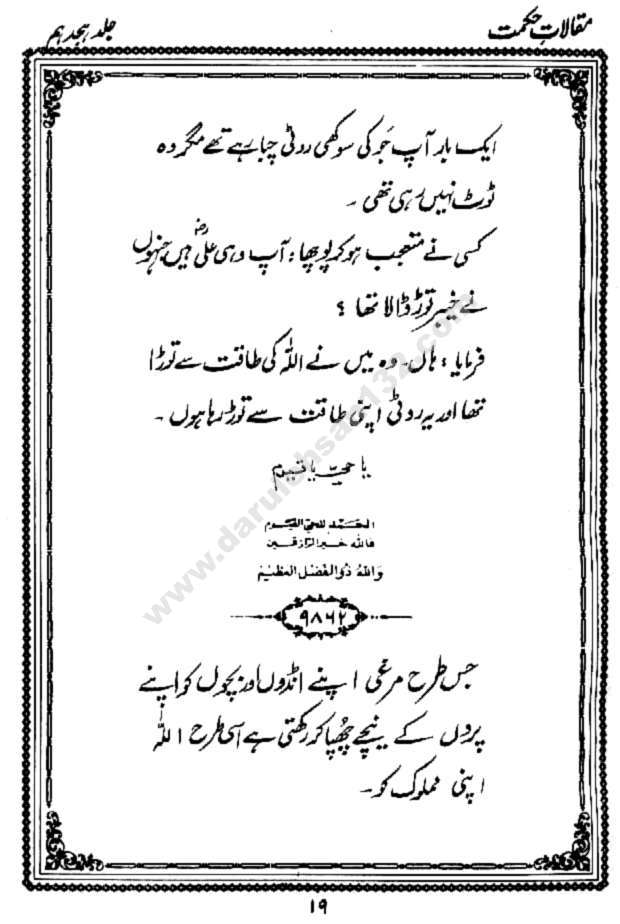 مقالاتِ حکمت
جلد ہجدہم
ایک بار آپ جَو کی سوکھی روٹی چبا رہے تھے مگر وہ
ٹوٹ نہیں رہی تھی ۔
کسی نے متعجب ہو کر پوچھا : آپ وہی علیؓ ہیں جنہوں
نے خیبر توڑ ڈالا تھا ؟
فرمایا : ہاں۔ وہ میں نے اللہ کی طاقت سے توڑا
تھا اور یہ روٹی اپنی طاقت سے توڑ رہا ہوں ۔
یا حیّ یا قیوم
الحمد للحی القیوم
فاللہ خیر الرازقین
واللہ ذوالفضل العظیم
۹۸۶۲
جس طرح مرغی اپنے انڈوں اور بچوں کو اپنے
پروں کے نیچے چھپا کر رکھتی ہے اسی طرح اللہ
اپنی مملوک کو ۔
۱۹
www.darulehsan132.com